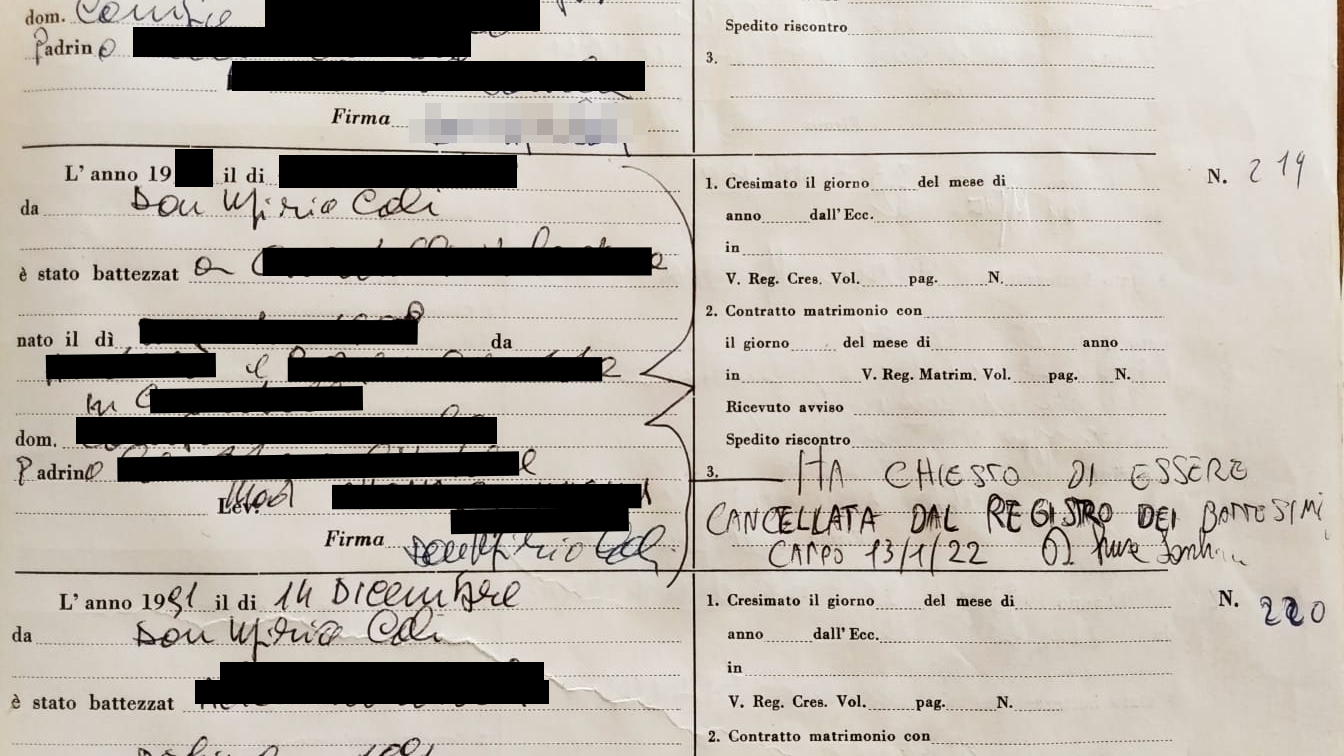 dom.
Padrino
Firma
Spedito riscontro
3.
L'anno 19 il di
da Don Upinio Coli
è stato battezzat a
nato il dì da
e
in
dom.
Padrino
Lev.
Firma
1. Cresimato il giorno del mese di
anno dall'Ecc.
in
V. Reg. Cres. Vol. pag. N.
2. Contratto matrimonio con
il giorno del mese di anno
in V. Reg. Matrim. Vol. pag. N.
Ricevuto avviso
Spedito riscontro
3. HA CHIESTO DI ESSERE
CANCELLATA DAL REGISTRO DEI BATTESIMI
CAMPO 13/1/22
N. 219
L'anno 1991 il di 14 Dicembre
da Don
è stato battezzat
1991
1. Cresimato il giorno del mese di
anno dall'Ecc.
in
V. Reg. Cres. Vol. pag. N.
2. Contratto matrimonio con
N. 220